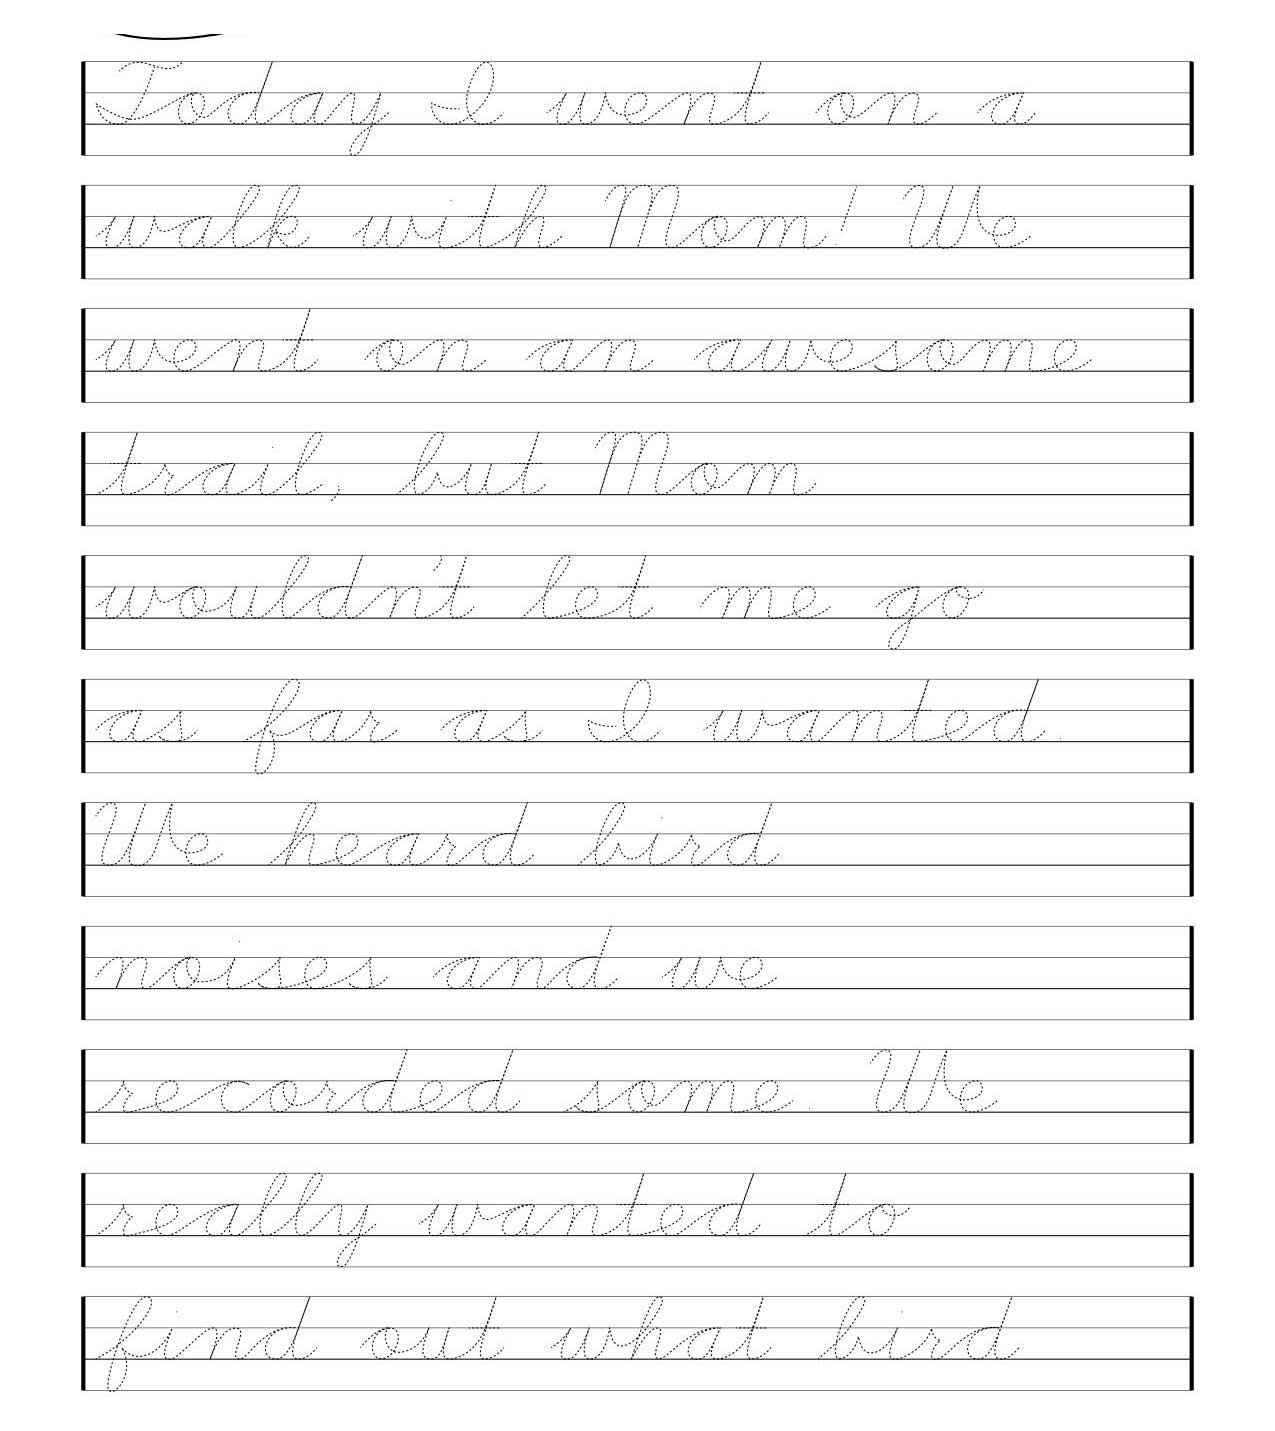 Today I went on a
walk with Mom! We
went on an awesome
trail, but Mom
wouldn't let me go
as far as I wanted.
We heard bird
noises and we
recorded some. We
really wanted to
find out what bird